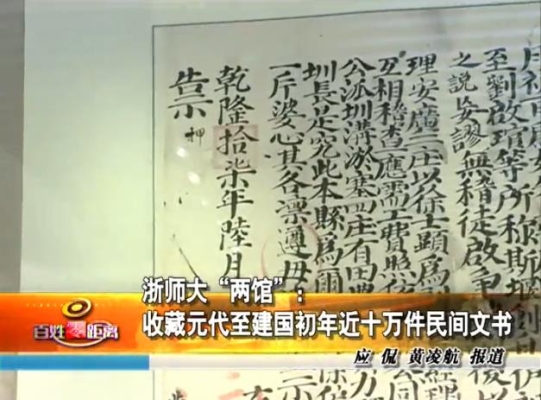 至劉啟璸等所称斯
之說妄謬無稽徒啟争
理安廣三庄以徐士顕為
互相稽查應需工費照
公派圳溝淤塞四庄有田
圳長是究此本縣為爾
一斤婆心其各凜遵毋
乾隆拾柒年陸月
告示 押
浙师大“两馆”：
收藏元代至建国初年近十万件民间文书
百姓零距离
应 侃 黄凌航 报道